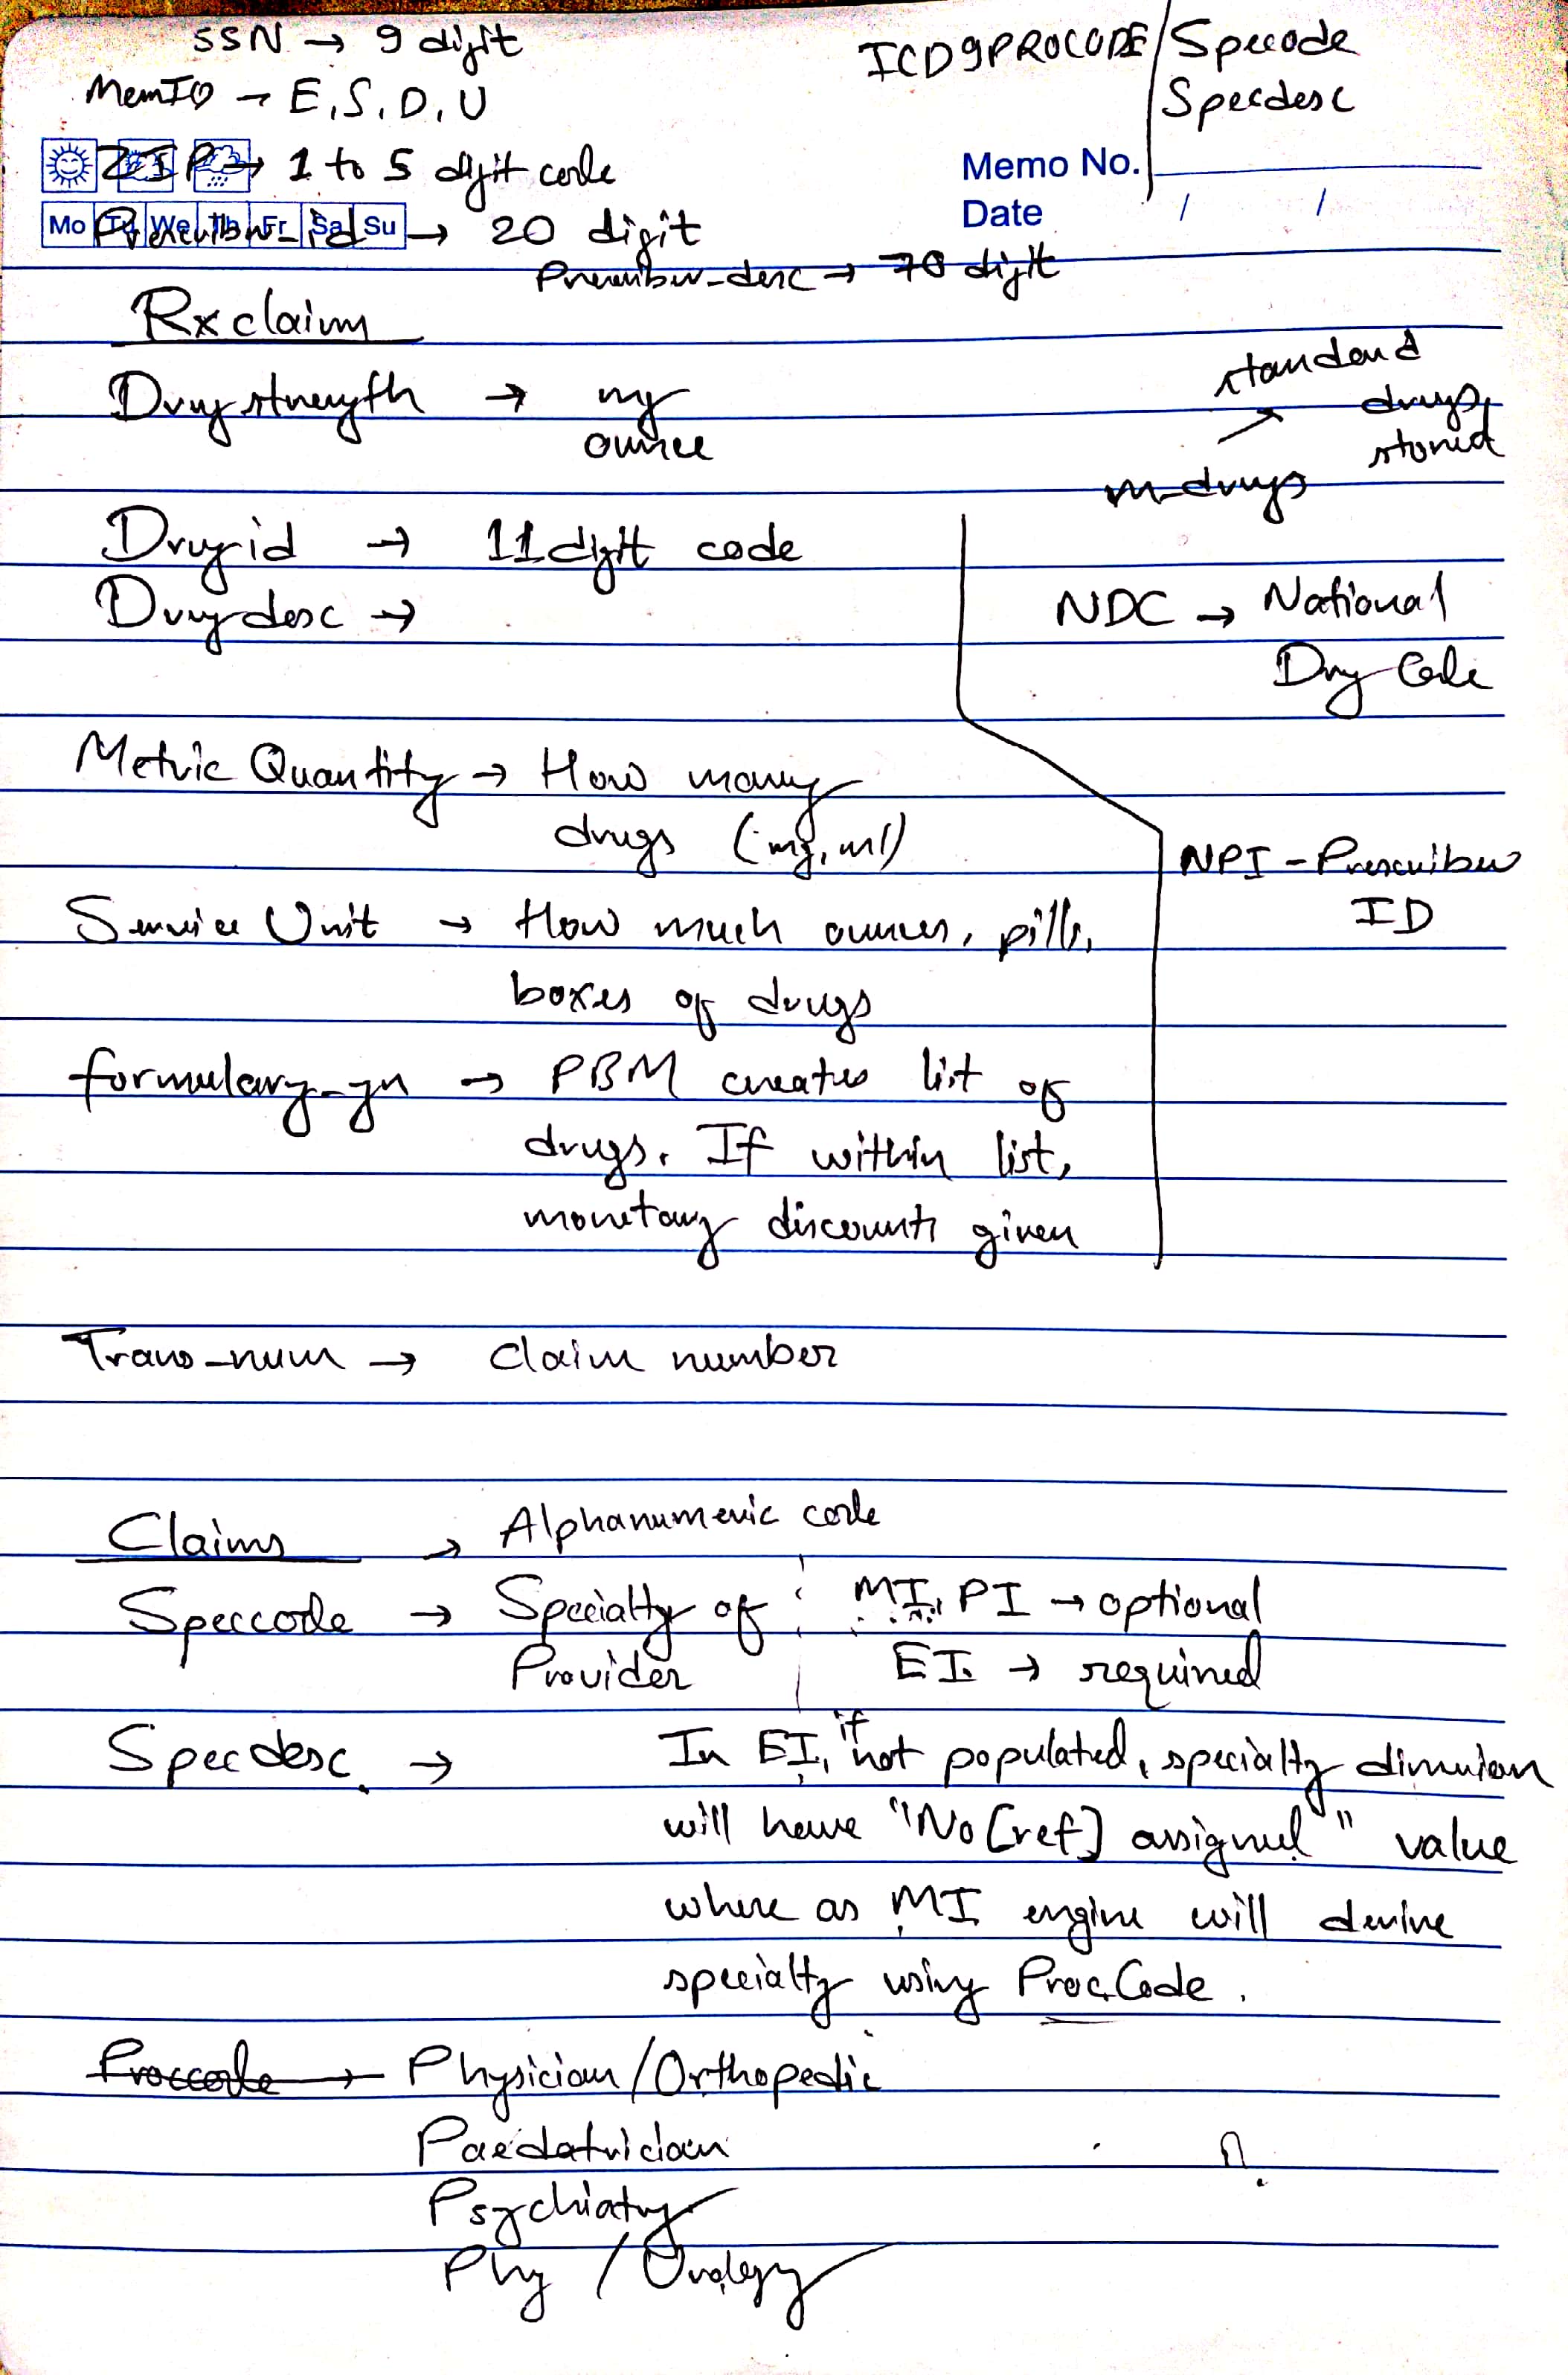 SSN → 9 digit
MemID → E, S, D, U
ICD9PROCODE / Speccode
Specdesc
ZIP → 1 to 5 digit code
Memo No.
Mo Tu We Th Fr Sa Su
Date / /
Prescriber_id → 20 digit
Prescriber_desc → 70 digit
Rxclaims
Drug strength → mg
ounce
standard
drugs
stored
m_drugs
Drug id → 11 digit code
Drug desc →
NDC → National
Drug Code
Metric Quantity → How many
drugs (mg, ml)
NPI - Prescriber
ID
Service Unit → How much ounces, pills,
boxes of drugs
formulary_yn → PBM creates list of
drugs. If within list,
monetary discounts given
Trans_num → claim number
Claims → Alphanumeric code
Speccode → Specialty of
Provider
MI, PI → optional
EI → required
Specdesc →
In EI, if not populated, specialty dimension
will have "No [ref] assigned" value
where as MI engine will derive
specialty using Proc.Code.
Proccode → Physician/Orthopedic
Paedatrician
Psychiatry
Phy / Urology